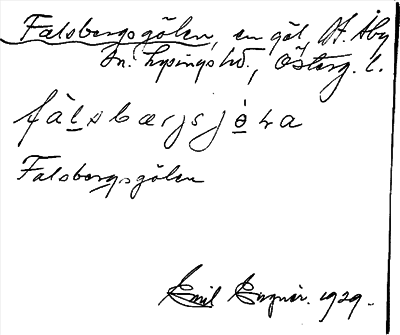 Falsbergsgölen, en göl, St. Åby
sn. Lysings hd., Österg. l.
fàlsbærjsjöɫa
Falsbergsgölen
Emil Engnér. 1929.